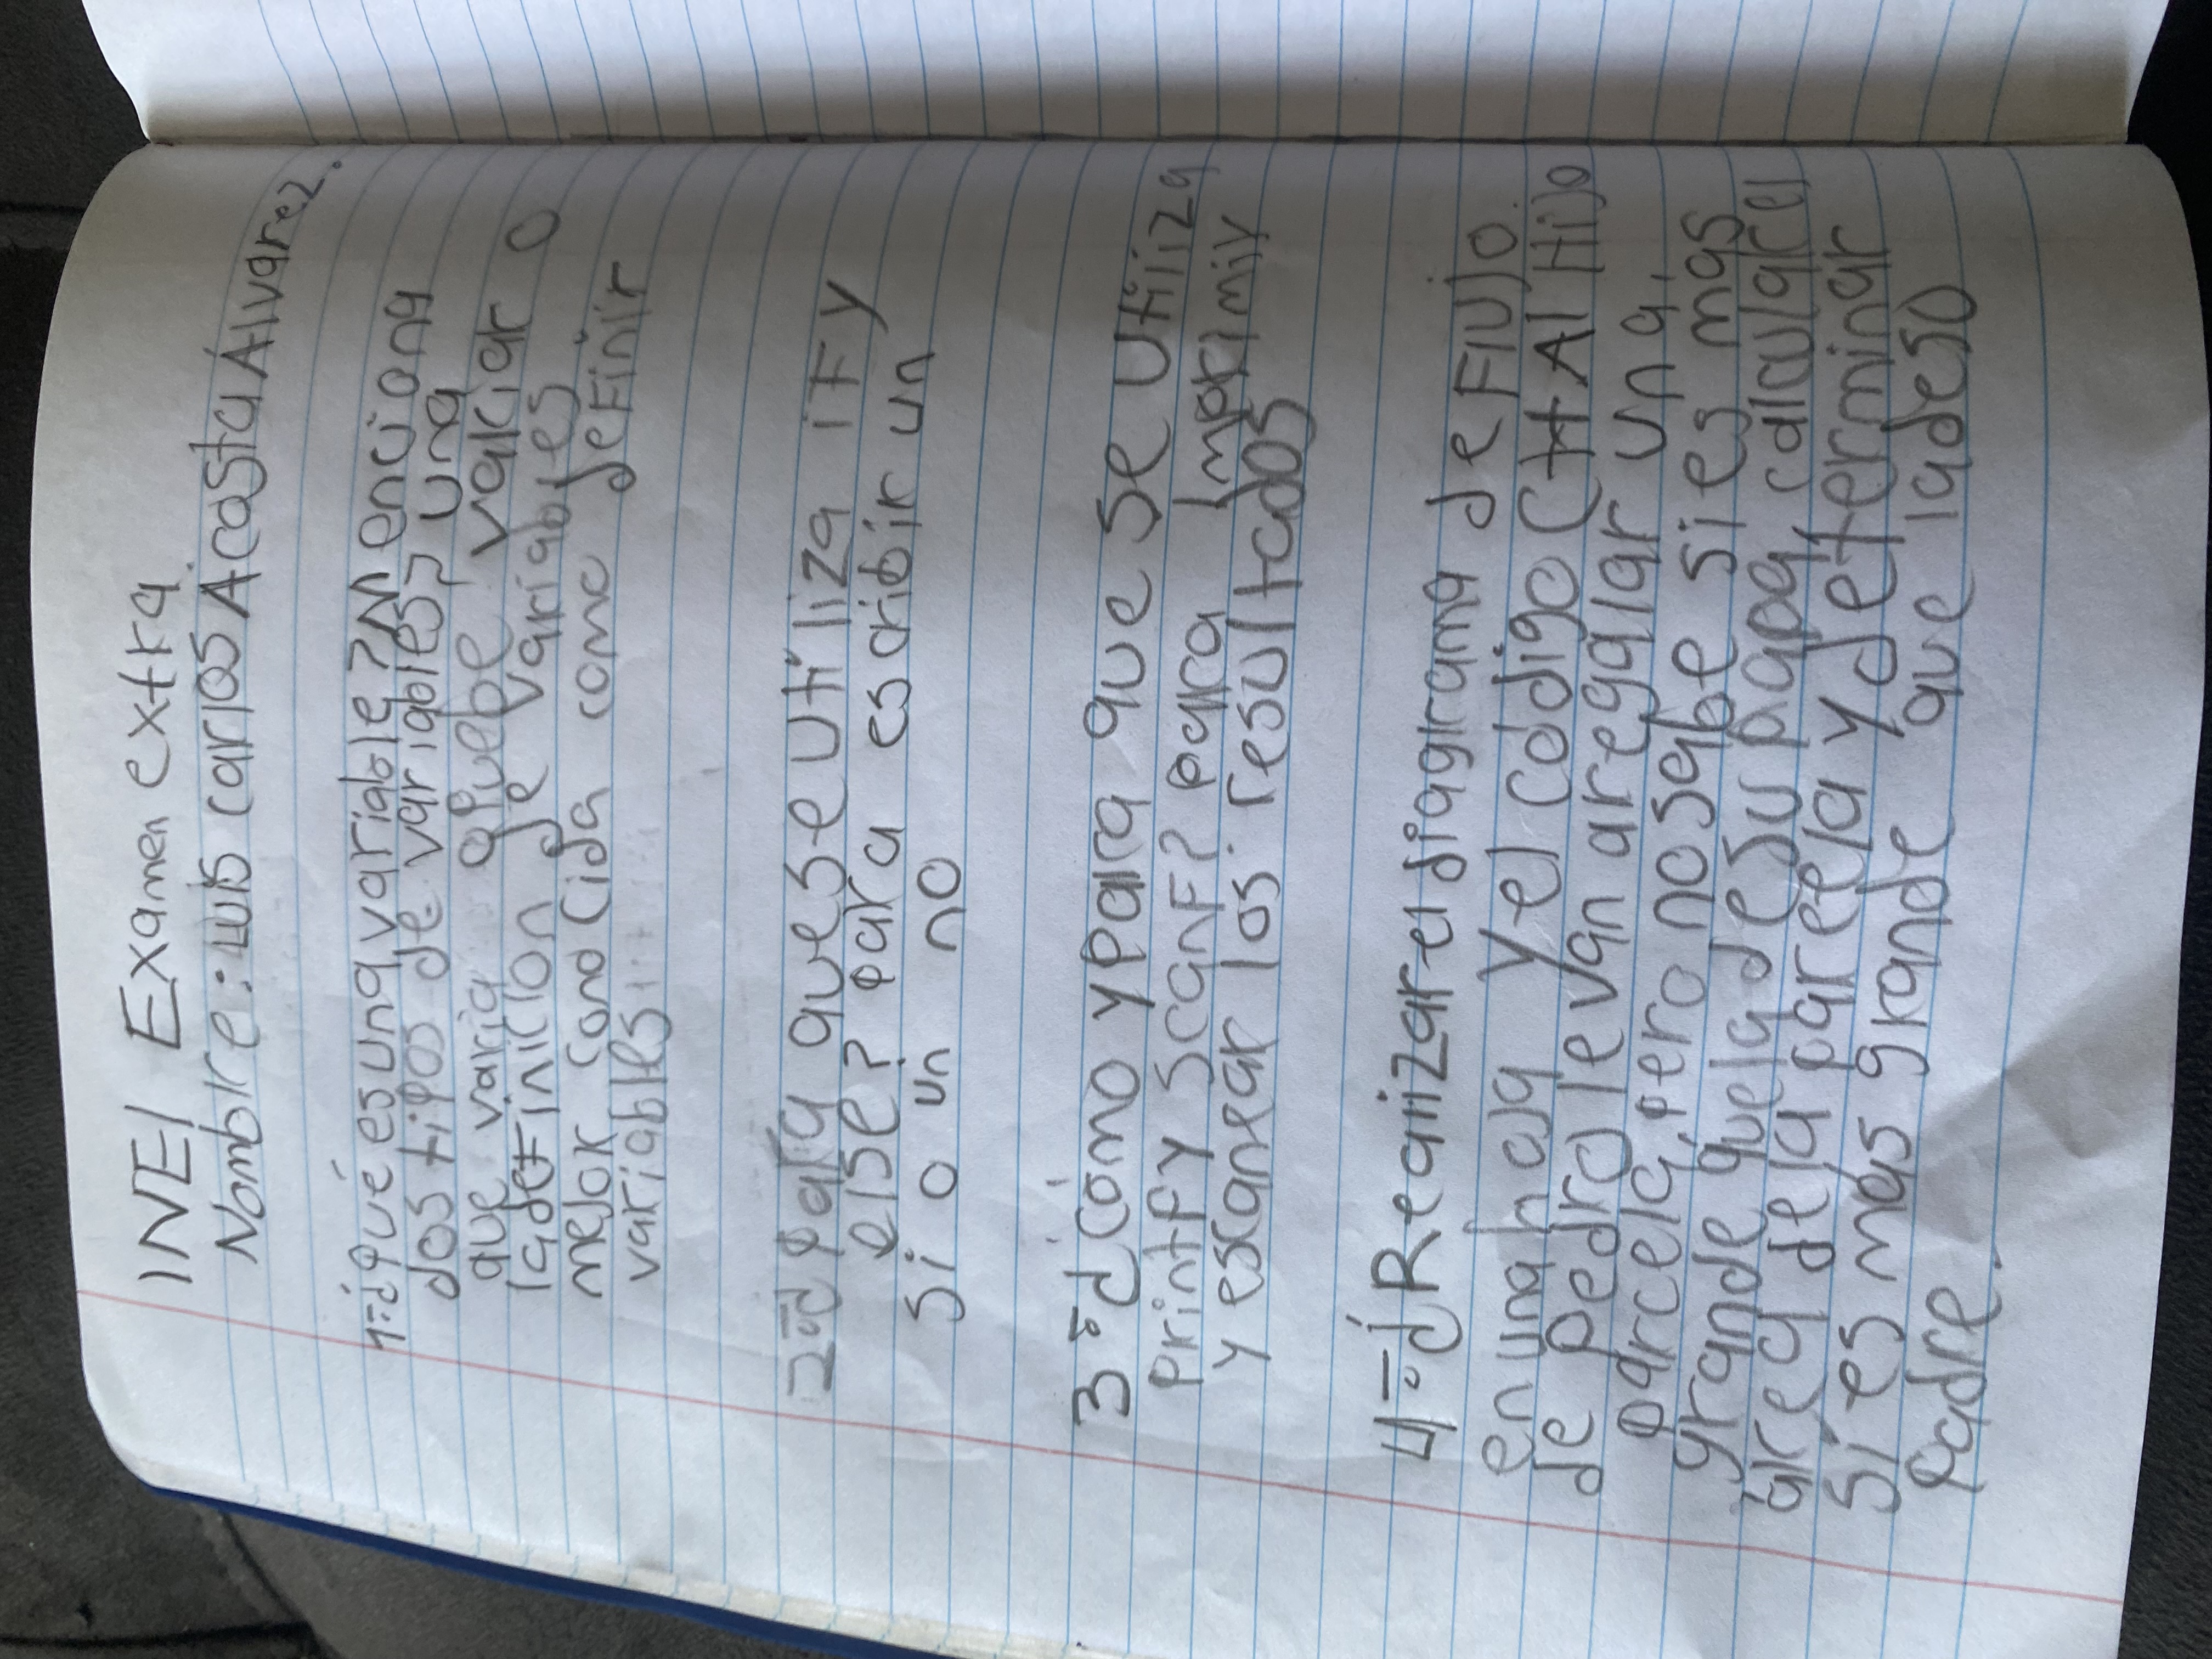 INEI Examen extra.
Nombre: Luis carlos Acosta Alvarez.
1-¿qué es una variable? Menciona
dos tipos de variables, una
que varia o puede vaciar o
la definicion de variables
mejor conocida como definir
variables.
2-¿para que se utiliza if y
else? para escribir un
si o un no
3-¿como y para que se utiliza
printf y scanf? para imprimir
y escanear los resultados
4-¿Realizar el diagrama de flujo
en una hoja y el codigo C++ Al hijo
de pedro le van a regalar una
parcela, pero no sabe si es mas
grande quela de su papá, calcular el
área de la parcela y determinar
si es mas grande que la de so
padre.